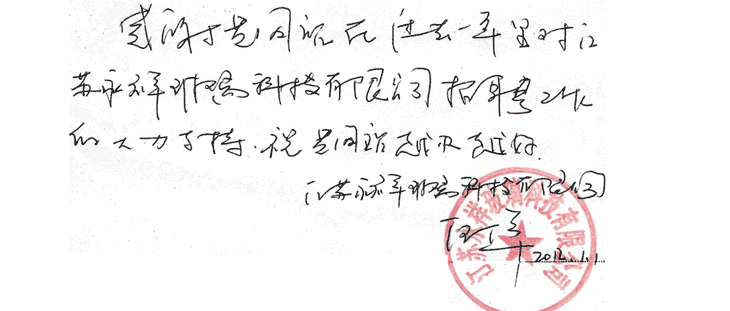 感谢贵网站在过去一年里对江
苏永祥玻璃科技有限公司招聘工作
的大力支持.祝贵网站越办越好.
江苏永祥玻璃科技有限公司
2012.1.1
江苏永祥玻璃科技有限公司